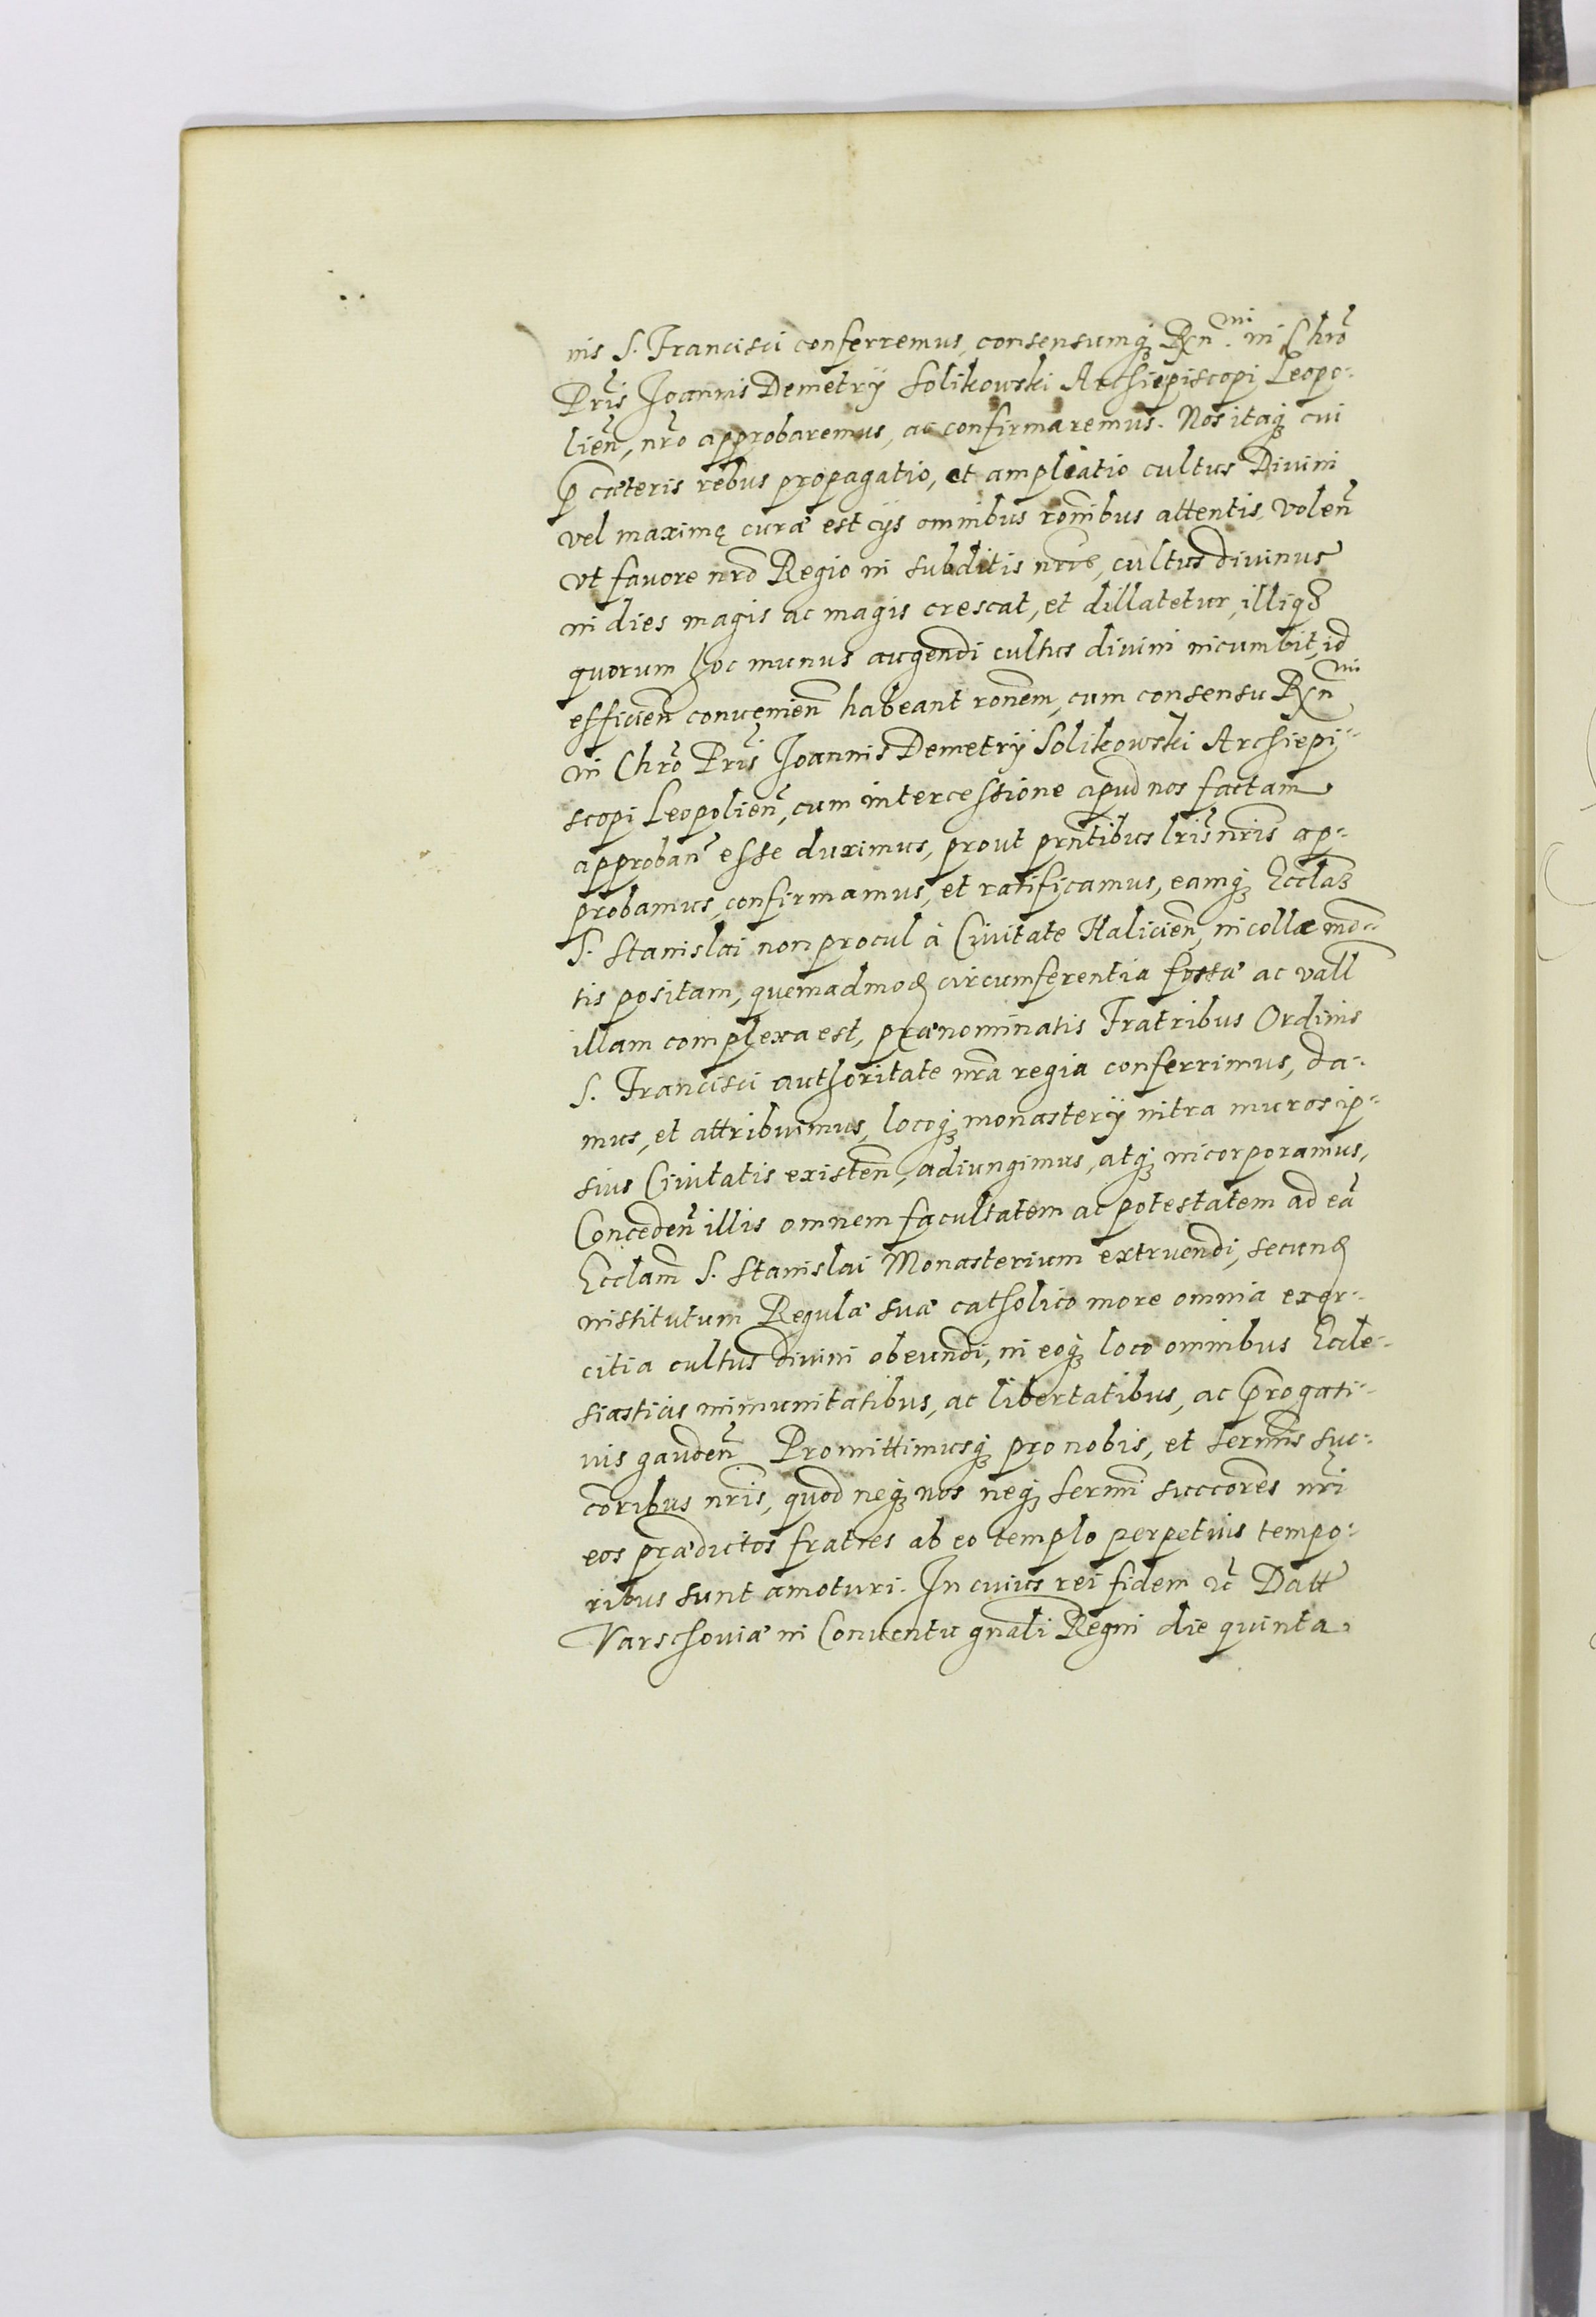 nis S. Francisci conferremus, consensumq₃ Rxn.ᵐⁱ in Chrō
Pr̃is Joannis Demetrÿ Solikowski Archiepiscopi Leopo-
lien̄, nr̃o approbaremus, ac confirmaremus. Nos itaq₃ cui
p̄ cæteris rebus propagatio, et ampliatio cultus Divini
vel maximę curæ est ijs omnibus ronibus attentis, volen̄
vt favore nr̃o Regio in subditis nr̃is, cultus divinus
in dies magis ac magis crescat, et dillatetur, illiq₃
quorum hoc munus augendi cultus divini incumbit, id
efficien̄ convenien̄ habeant ronem, cum consensu Rxnᵐⁱ
in Chrō Pr̃is Joannis Demetrÿ Solikowski Archiepi-
scopi Leopolien̄, cum intercessione apud nos factam
approban̄ esse duximus, prout prn̄tibus lr̃is nr̃is ap-
probamus, confirmamus, et ratificamus, eamq₃ Ecclam̄
S. Stanislai non procul à Civitate Halicien̄, in collæ mō-
tis positam, quemadmoḍ circumferentia fossæ ac vall
illam complexa est, prænominatis Fratribus Ordinis
S. Francisci authoritate nr̃a regia conferrimus, da-
mus, et attribuimus, locoq₃ monasterÿ intra muros ip-
sius Civitatis existen̄, adiungimus, atq₃ incorporamus,
Conceden̄ illis omnem facultatem ac potestatem ad eā
Ecclam̄ S. Stanislai Monasterium extruendi, secunḍ
institutum Regulæ suæ catholico more omnia exer-
citia cultus divini obeundi, in eoq₃ loco omnibus Eccle-
siasticis immunitatibus, ac libertatibus, ac p̄rogati-
vis gauden̄ Promittimusq₃ pro nobis, et serm̄is suc-
coribus nr̃is, quod neq₃ nos neq₃ serm̄i succores nr̃i
eos prædictos fratres ab eo templo perpetuis tempo-
ribus sunt amoturi. In cuius rei fidem ꝛc̄ Datt
Varschoviæ in Conventu gnali Regni die quinta